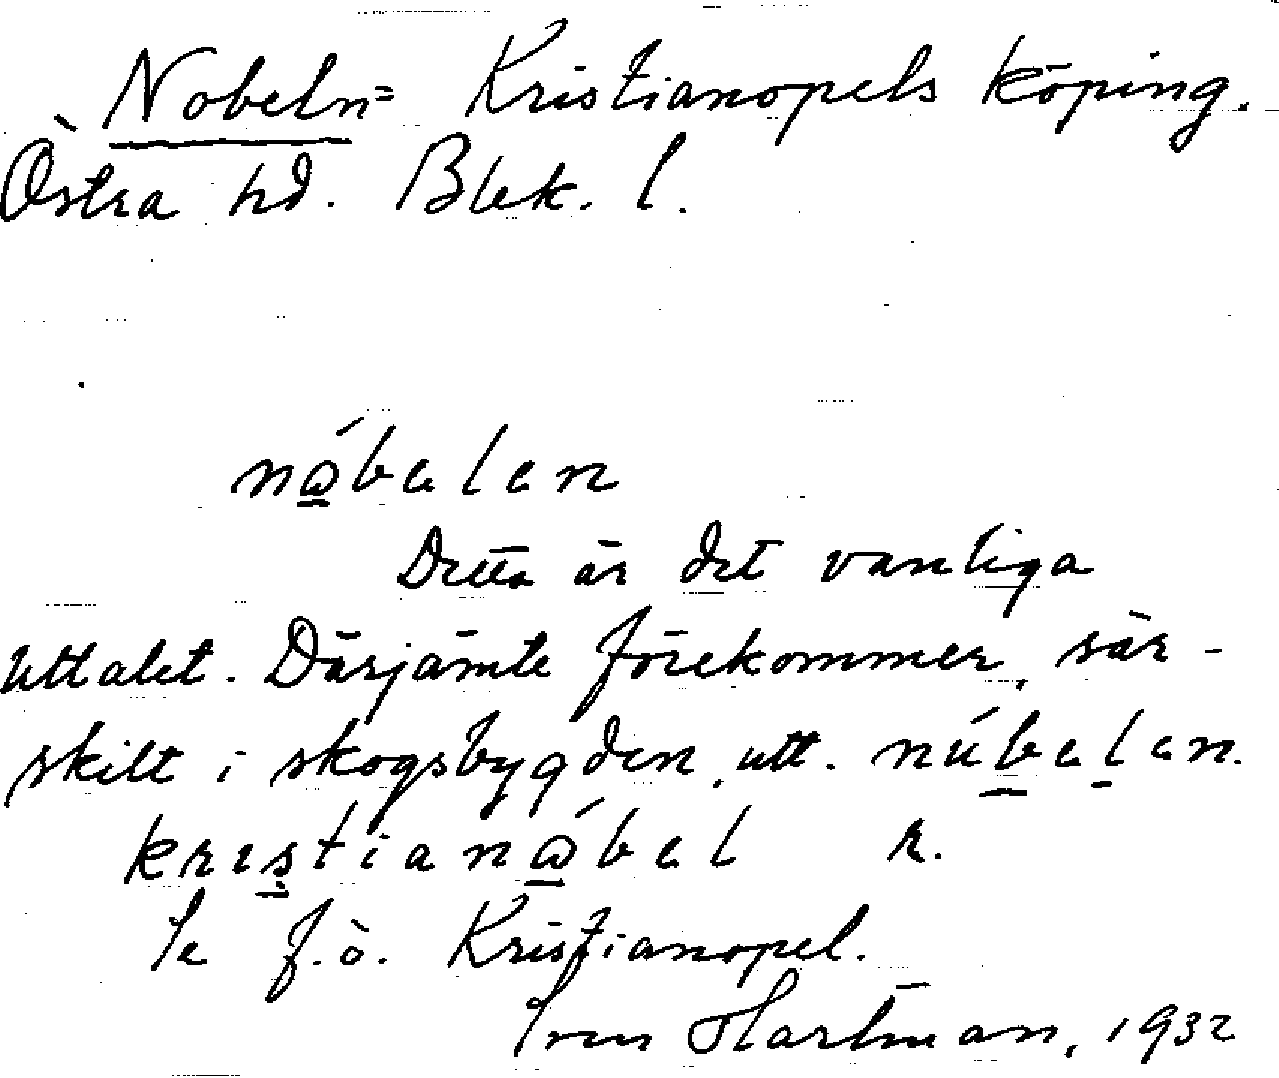 Nobeln = Kristianopels köping.
Östra hd. Blek. l.
nώ̲belen
Detta är det vanliga
uttalet. Därjämte förekommer, sär-
skilt i skogsbygden, utt. núb̲el̲en.
kris̲tianώ̲bel r.
Se f.ö. Kristianopel.
Hartman, 1932